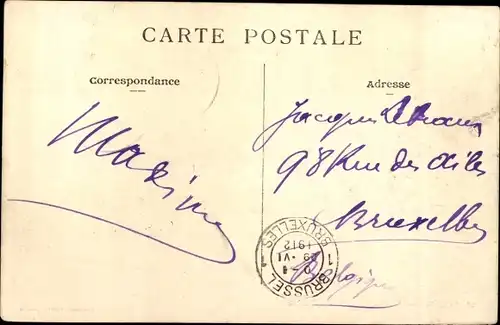 CARTE POSTALE
Correspondance
Adresse
Maxime
Jacques
98 Rue des Ailes
Bruxelles
Belgique
BRUXELLES
1912
29 · VI
BRUSSEL 1